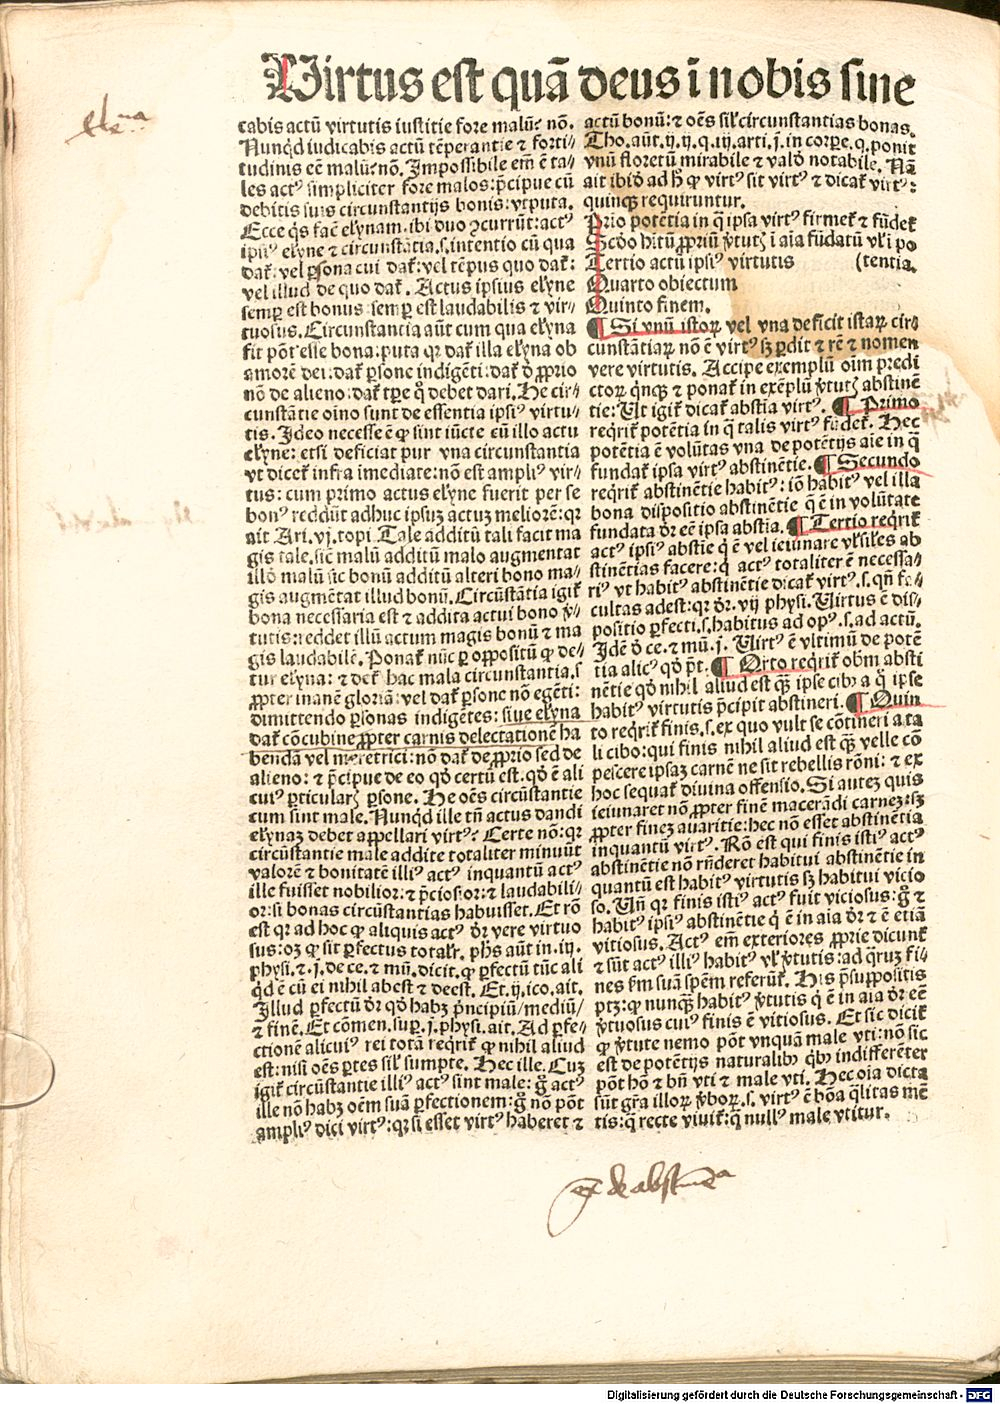 Virtus est quā deus ī nobis sine
elīa
cabis actū virtutis iustitie fore malū? nō.
Nunqd iudicabis actū tēperantie ⁊ forti⸗
tudinis eē malū? nō. Impossibile em̄ ē ta⸗
les actꝰ simpliciter fore malos: p̄cipue cū
debitis suis circunstantijs bonis: vtputa.
Ecce q̄s facē elȳnam. ibi duo ↄcurrūt: actꝰ
ipiꝰ elȳne ⁊ circūstātia. s. intentio cū qua
dat̄. vel psona cui dat̄: vel tēpus quo dat̄:
vel illud de quo dat̄. Actus ipsius elȳne
semp est bonus: semp est laudabilis ⁊ vir⸗
tuosus. Circunstantia aūt cum qua elȳna
fit pōt esse bona: puta qꝛ dat̄ illa elȳna ob
amorē dei: dat̄ psone indigēti: dat̄ ō pprio
nō de alieno: dat̄ tpe q̄ debet dari. He cir⸗
cunstātie oīno sunt de essentia ipsiꝰ virtu⸗
tis. Ideo necesse ē ꝙ sint iūcte cū illo actu
elȳne: etsi deficiat pur vna circunstantia
vt dicet̄ infra imediate: nō est ampliꝰ vir⸗
tus: cum primo actus elȳne fuerit per se
bonꝰ reddūt adhuc ipsuꝫ actuꝫ meliorē: qꝛ
ait Ari. vj. topi. Tale additū tali facit ma
gis tale. sic̄ malū additū malo augmentat
illō malū sic bonū additū alteri bono ma⸗
gis augmētat illud bonū. Circūstātia igit̄
bona necessaria est ⁊ addita actui bono v̄⸗
tutis: reddet illū actum magis bonū ⁊ ma
gis laudabilē. Ponat̄ nūc p oppositū ꝙ de⸗
tur elȳna: ⁊ dcet̄ hac mala circumstātia. s
ppter inanē gloriā: vel dat̄ psone nō egēti:
dimittendo psonas indigētes: siue elȳna
dat̄ cōcubine ppter carnis delectationē ha
bendā vel meretrici: nō dat̄ de pprio sed de
alieno: ⁊ p̄cipue de eo qd̄ certū est. qd̄ ē ali
cuiꝰ pticularꝫ psone. He oēs circūstantie
cum sint male. Nunqd ille tn̄ actus dandi
elȳnaꝫ debet appellari virtꝰ? Certe nō: qꝛ
circūstantie male addite totaliter minuūt
valorē ⁊ bonitatē illiꝰ actꝰ inquantū actꝰ
ille fuisset nobilior: ⁊ p̄ciosior: ⁊ laudabili⸗
or: si bonas circūstantias habuisset. Et rō
est qꝛ ad hoc ꝙ aliquis actꝰ dꝛ vere virtuo
sus: oꝫ ꝙ sit pfectus totalr. phs aūt in. iij.
physi. ⁊. j. de ce. ⁊ mū. dicit. ꝙ pfectū tūc ali
qd̄ ē cū ei nihil abest ⁊ deest. Et. ij. ico. ait.
Illud pfectū dꝛ qd̄ habꝫ p̄ncipiū/mediū/
⁊ finē. Et cōmen. sup. j. physi. ait. Ad pfe⸗
ctionē alicuiꝰ rei totā reqrit̄ ꝙ nihil aliud
est: nisi oēs ptes sil sumpte. Hec ille. Cuꝫ
igit̄ circūstantie illiꝰ actꝰ sint male: g̊ actꝰ
ille nō habꝫ oēm suā pfectionem: g̊ nō pōt
ampliꝰ dici virtꝰ: qꝛ si esset virtꝰ haberet ⁊
actū bonū: ⁊ oēs sil circunstantias bonas.
Tho. aūt. ij. ij. q. iij. arti. j. in corpe. q. ponit
vnū floretū mirabile ⁊ valō notabile. Nā
ait ibid̄ ad h̄ ꝙ virtꝰ sit virtꝰ ⁊ dicat̄ virtꝰ:
quinqꝫ requiruntur.
Prīo potētia in q̄ ipsa virtꝰ firmet̄ ⁊ fūdet̄
Scd̄o hitū ppriū v̄tutꝫ ī aīa fūdatū vl ī po
Tertio actū ipsiꝰ virtutis (tentia.
Quarto obiectum
Quinto finem.
¶ Si vnū istoꝝ vel vna deficit istaꝝ cir⸗
cunstātiaꝝ nō ē virtꝰ sꝫ pdit ⁊ rē ⁊ nomen
vere virtutis. Accipe exemplū oīm predi
ctoꝝ qnqꝫ ⁊ ponat̄ in exēplū v̄tutꝫ abstinē
tie: Ut igit̄ dicat̄ abstīa virtꝰ. ¶ Primo
reqrit̄ potētia in q̄ talis virtꝰ fūdet̄. Hec
potētia ē volūtas vna de potētijs aīe in q̄
fundat̄ ipsa virtꝰ abstinētie. ¶ Secundo
reqrit̄ abstinētie habitꝰ: iō habitꝰ vel illa
bona dispositio abstinētie q̄ ē in volūtate
fundata dꝛ eē ipsa abstīa. ¶ Tertio reqrit̄
actꝰ ipsiꝰ abstīe q̄ ē vel ieiunare vl siles ab
stinētias facere: q̄ actꝰ totaliter ē necessa⸗
riꝰ vt habitꝰ abstinētie dicat̄ virtꝰ. s. qn̄ fa⸗
cultas adest: qꝛ dꝛ. vij physi. Virtus ē dis⸗
positio pfecti. s. habitus ad opꝰ. s. ad actū.
Idē ō ce. ⁊ mū. j. Virtꝰ ē vltimū de potē
tia alicꝰ qō pt̄. ¶ Qrto reqrit̄ obm̄ absti
nētie qd̄ nihil aliud est qꝫ ipse cibꝰ a q̄ ipse
habitꝰ virtutis p̄cipit abstineri. ¶ Quin
to reqrit̄ finis. s. ex quo vult se cōtineri a ta
li cibo: qui finis nihil aliud est qꝫ velle cō
pescere ipsaꝫ carnē ne sit rebellis rōni: ⁊ ex
hoc sequat̄ diuina offensio. Si auteꝫ quis
ieiunaret nō ppter finē macerādi carneꝫ: sꝫ
ppter fineꝫ auaritie: hec nō esset abstinētia
inquantū virtꝰ. Rō est qui finis istiꝰ actꝰ
abstinētie nō rn̄deret habitui abstinētie in
quantū est habitꝰ virtutis sꝫ habitui vicio
so. Vn̄ qꝛ finis istiꝰ actꝰ fuit viciosus: g̊ ⁊
habitꝰ ipsiꝰ abstinētie q̄ ē in aīa dꝛ ⁊ ē etiā
vitiosus. Actꝰ em̄ exteriores pprie dicunt̄
⁊ sūt actꝰ illiꝰ habitꝰ vl v̄tutis: ad qruꝫ fi⸗
nes fm suā spēm referūt̄. His p̄suppositis
ptꝫ: ꝙ nunqꝫ habitꝰ v̄tutis q̄ ē in aīa dꝛ eē
v̄tuosus cuiꝰ finis ē vitiosus. Et sic dicit̄
ꝙ v̄tute nemo pōt vnquā male vti: nō sic
est de potētijs naturalibꝰ qbꝰ indifferēter
pōt hō ⁊ bn̄ vti ⁊ male vti. Hec oīa dicta
sūt gr̄a illoꝝ v̄boꝝ. s. virtꝰ ē bōa qlitas mē
tis: q̄ recte viuit̄: q̄ nullꝰ male vtitur.
de abstinēa
Digitalisierung gefördert durch die Deutsche Forschungsgemeinschaft - DFG